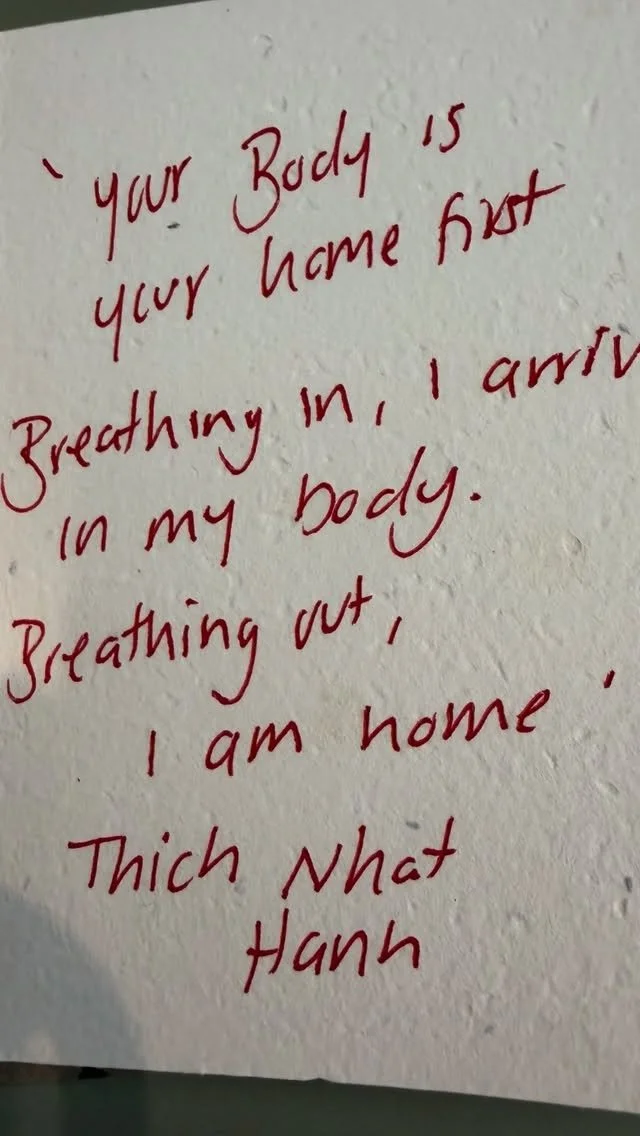 ' your Body is
your home first
Breathing in, I arriv
in my body.
Breathing out,
I am home '
Thich Nhat
Hanh